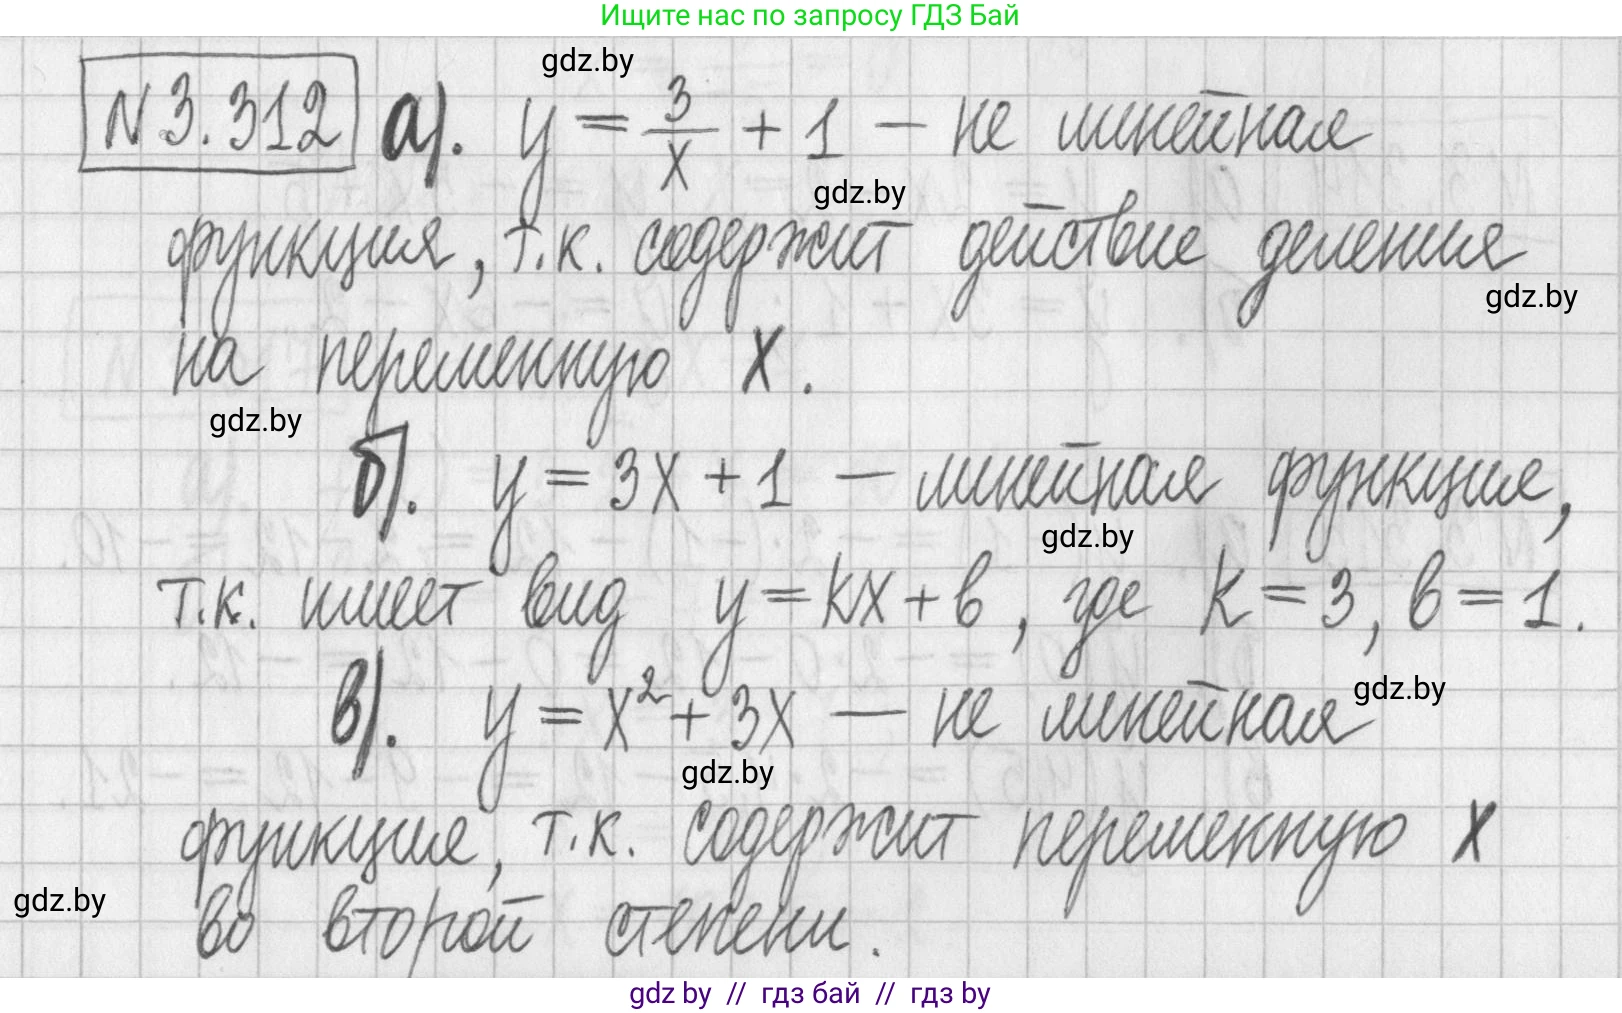 Ищите нас по запросу ГДЗ Бай
gdz.by
N3.312 а). y = 3/x + 1 – не линейная
gdz.by
функция, т.к. содержит действие деления
gdz.by
на переменную x.
gdz.by
б). y = 3x + 1 – линейная функция,
gdz.by
т.к. имеет вид y = kx + b, где k = 3, b = 1.
gdz.by
в). y = x² + 3x – не линейная
gdz.by
функция, т.к. содержит переменную x
gdz.by
во второй степени.
gdz by // гдз бай // гдз by